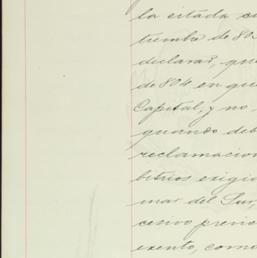 la citada
tiembre de 82
declara, que
de 804 en que
Capital, y no
quando deb
reclamacion
bitrios exigi
mar del Sur,
cesivo previ
exento, como